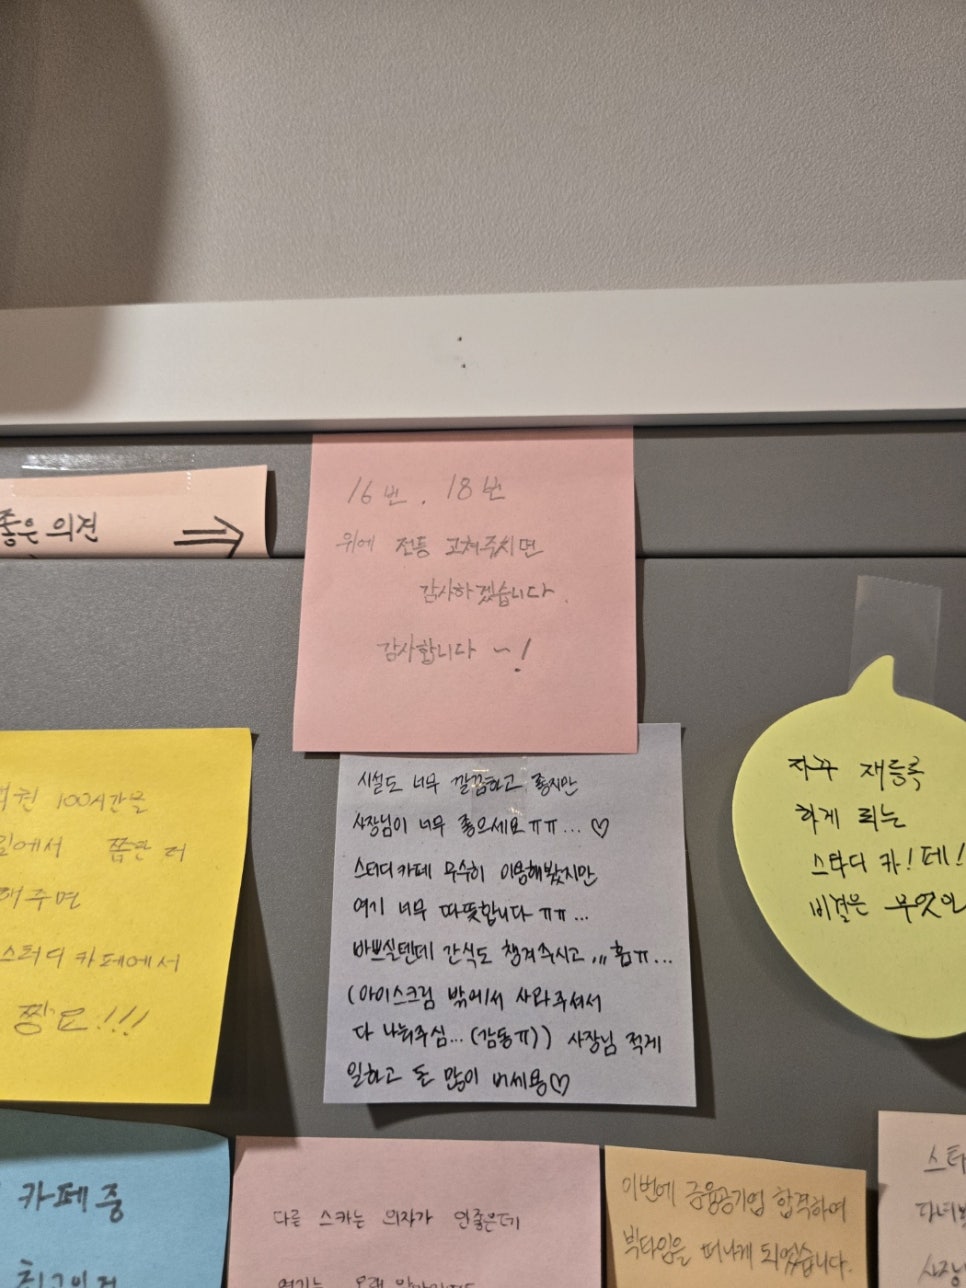 좋은 의견
16번, 18번
위에 전등 고쳐주시면
감사하겠습니다.
감사합니다 ~!
100시간을
쫍은 더
해주면
스터디카페에서
짱요!!!
시설도 너무 깔끔하고 좋지만
사장님이 너무 좋으세요ㅠㅠ... ♡
스터디카페 무수히 이용해봤지만
여기 너무 따뜻합니다 ㅠㅠ...
바쁘실텐데 간식도 챙겨주시고,,,흡ㅠ...
(아이스크림 밖에서 사와주셔서
다 나눠주심...(감동ㅠ)) 사장님 적게
일하고 돈 많이 버세용♡
자꾸 재등록
하게 되는
스터디 카!페!
비결은 무엇인
카페 중
최고의점
다른 스카는 의자가 안좋은데
여기는 오래 앉아있어도
이번에 금융공기업 합격하여
빅타임을 떠나게 되었습니다.
스터
다녀
사장님